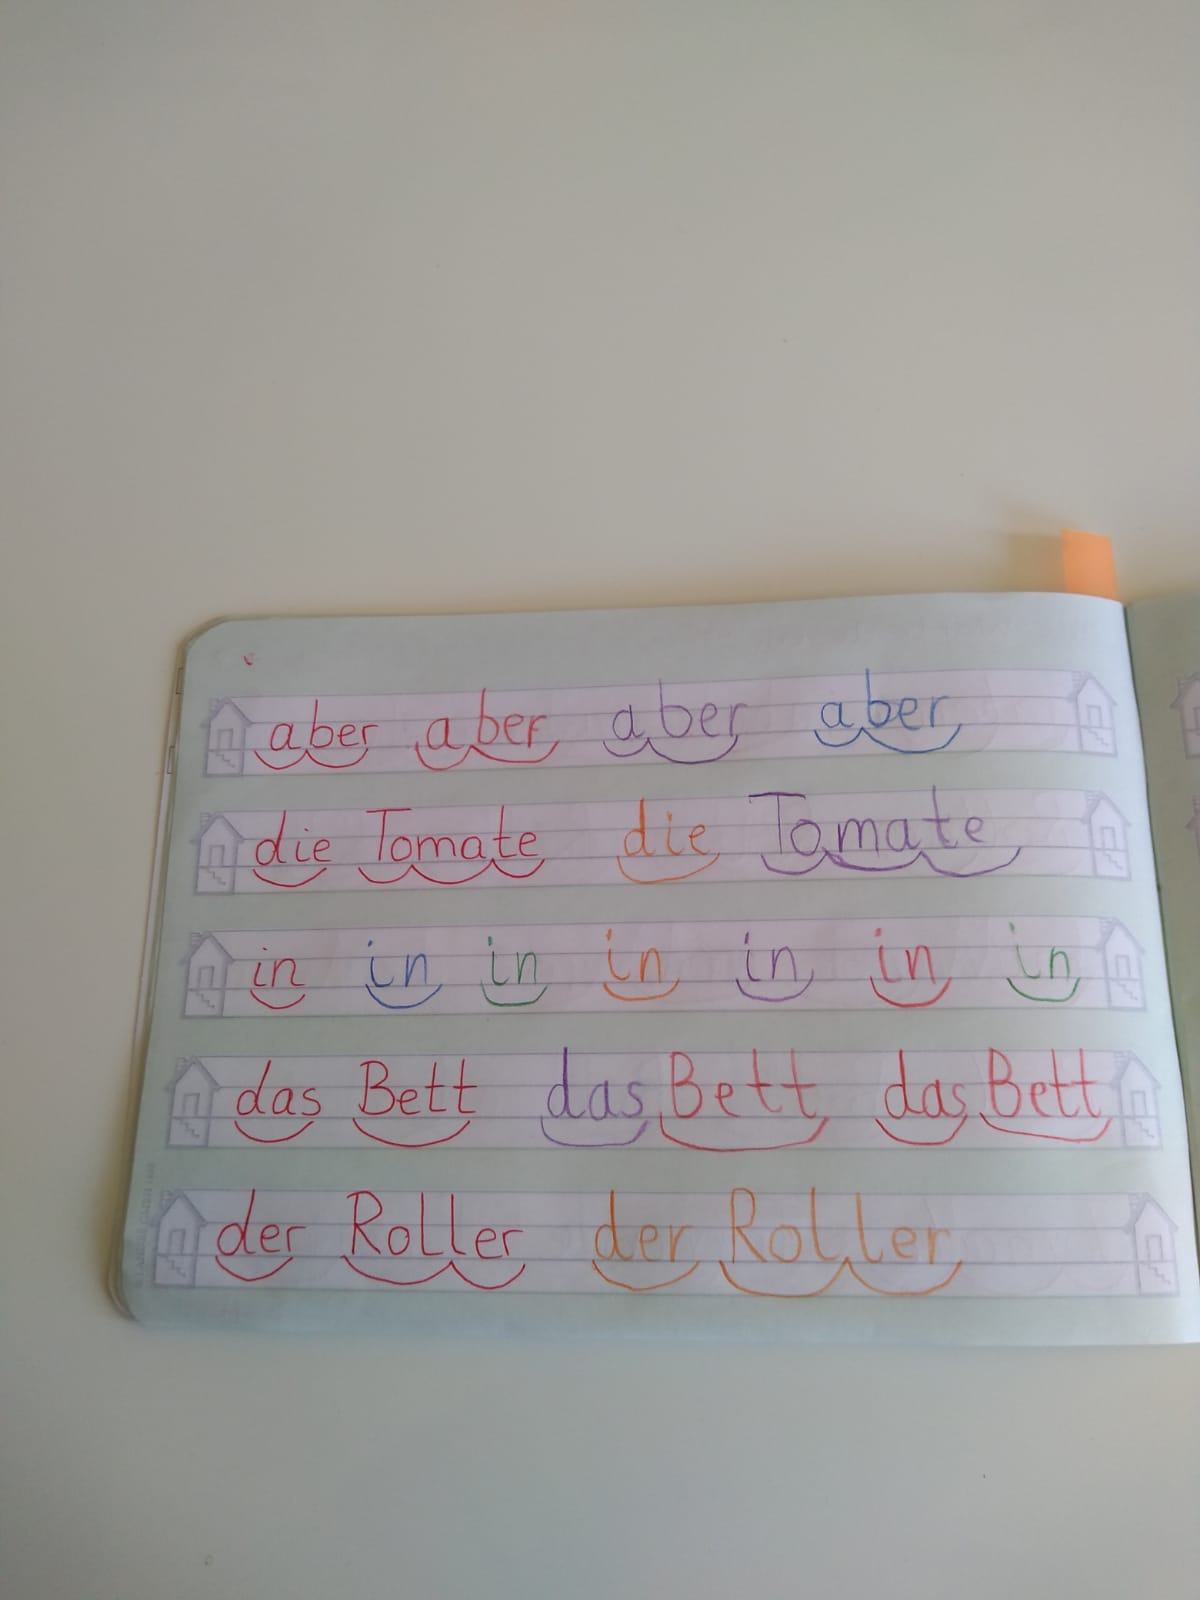 aber aber aber aber
die Tomate die Tomate
in in in in in in in
das Bett das Bett das Bett
der Roller der Roller